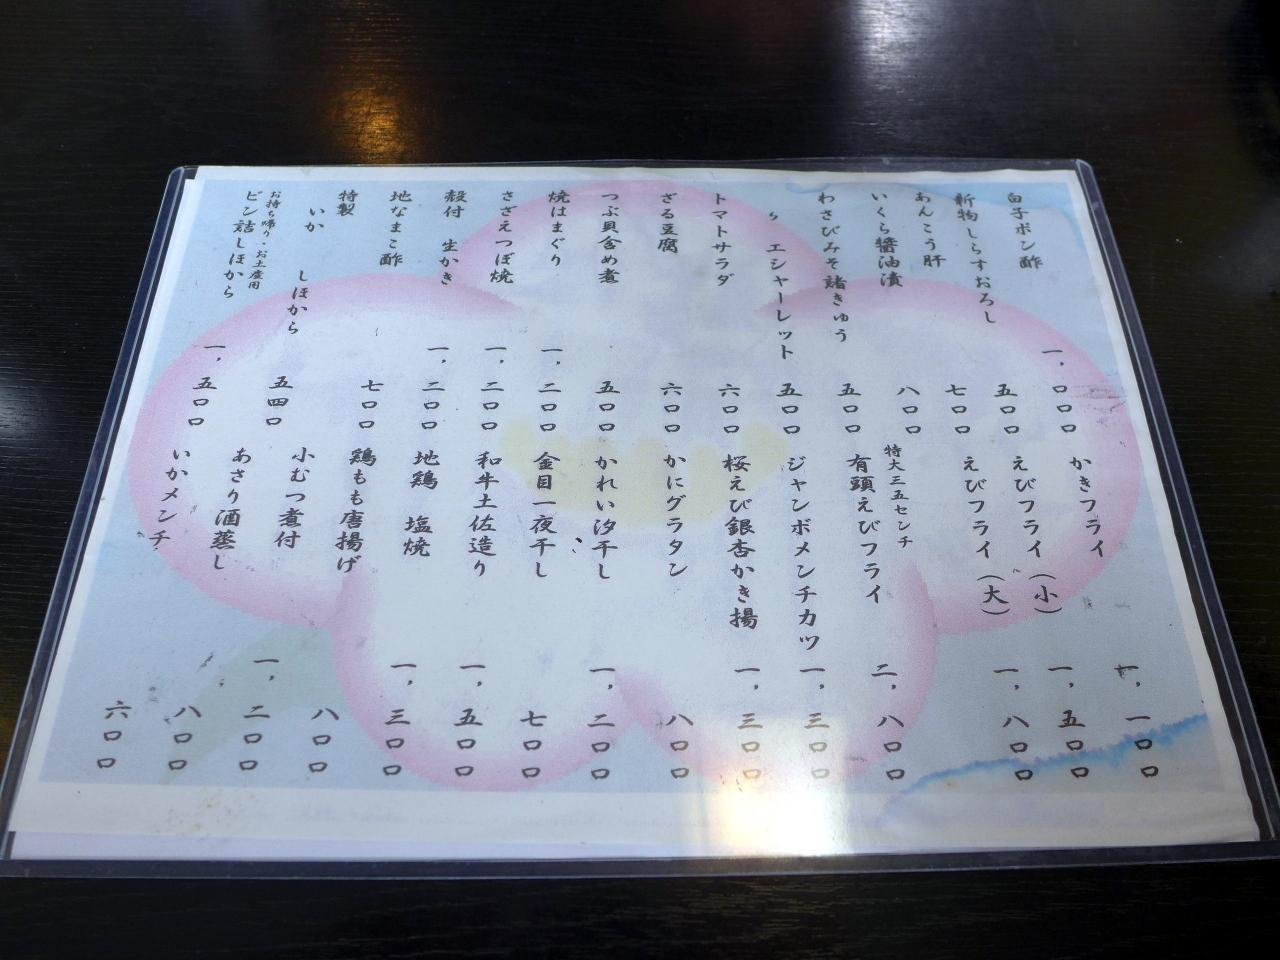 白子ポン酢 一,〇〇〇
新物しらすおろし 五〇〇
あんこう肝 七〇〇
いくら醤油漬 八〇〇
わさびみそ諸きゅう 五〇〇
〃 エシャーレット 五〇〇
トマトサラダ 六〇〇
ざる豆腐 六〇〇
つぶ貝含め煮 五〇〇
焼はまぐり 一,二〇〇
さざえつぼ焼 一,二〇〇
殻付 生かき 一,二〇〇
地なまこ酢 七〇〇
特製
いか しほから 五四〇
お持ち帰り・お土産用
ビン詰しほから 一,五〇〇
かきフライ 一,一〇〇
えびフライ(小) 一,五〇〇
えびフライ(大) 一,八〇〇
特大三五センチ
有頭えびフライ 二,八〇〇
ジャンボメンチカツ 一,三〇〇
桜えび銀杏かき揚 一,三〇〇
かにグラタン 八〇〇
かれい汐干し 一,二〇〇
金目一夜干し 七〇〇
和牛土佐造り 一,五〇〇
地鶏 塩焼 一,三〇〇
鶏もも唐揚げ 八〇〇
小むつ煮付 一,二〇〇
あさり酒蒸し 八〇〇
いかメンチ 六〇〇